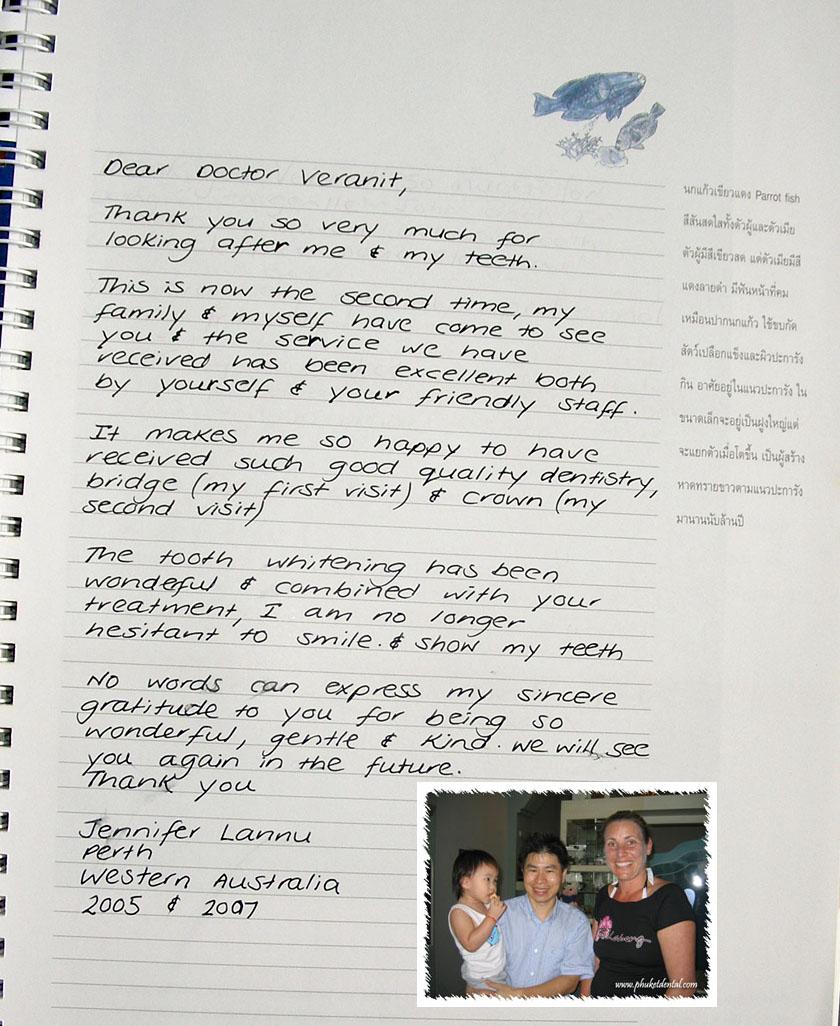 Dear Doctor Veranit,
Thank you so very much for
looking after me & my teeth.
This is now the second time, my
family & myself have come to see
you & the service we have
received has been excellent both
by yourself & your friendly staff.
It makes me so happy to have
received such good quality dentistry,
bridge (my first visit) & crown (my
second visit)
The tooth whitening has been
wondeful & combined with your
treatment, I am no longer
hesitant to smile. & show my teeth
No words can express my sincere
gratitude to you for being so
wonderful, gentle & kind. We will see
you again in the future.
Thank you
Jennifer Lannu
Perth
Western Australia
2005 & 2007
นกแก้วเขียวแดง Parrot fish
สีสันสดใสทั้งตัวผู้และตัวเมีย
ตัวผู้มีสีเขียวสด แต่ตัวเมียมีสี
แดงลายดำ มีฟันหน้าที่คม
เหมือนปากนกแก้ว ใช้ขบกัด
สัตว์เปลือกแข็งและผิวปะการัง
กิน อาศัยอยู่ในแนวปะการัง ใน
ขนาดเล็กจะอยู่เป็นฝูงใหญ่แต่
จะแยกตัวเมื่อโตขึ้น เป็นผู้สร้าง
หาดทรายขาวตามแนวปะการัง
มานานนับล้านปี
www.phuketdental.com